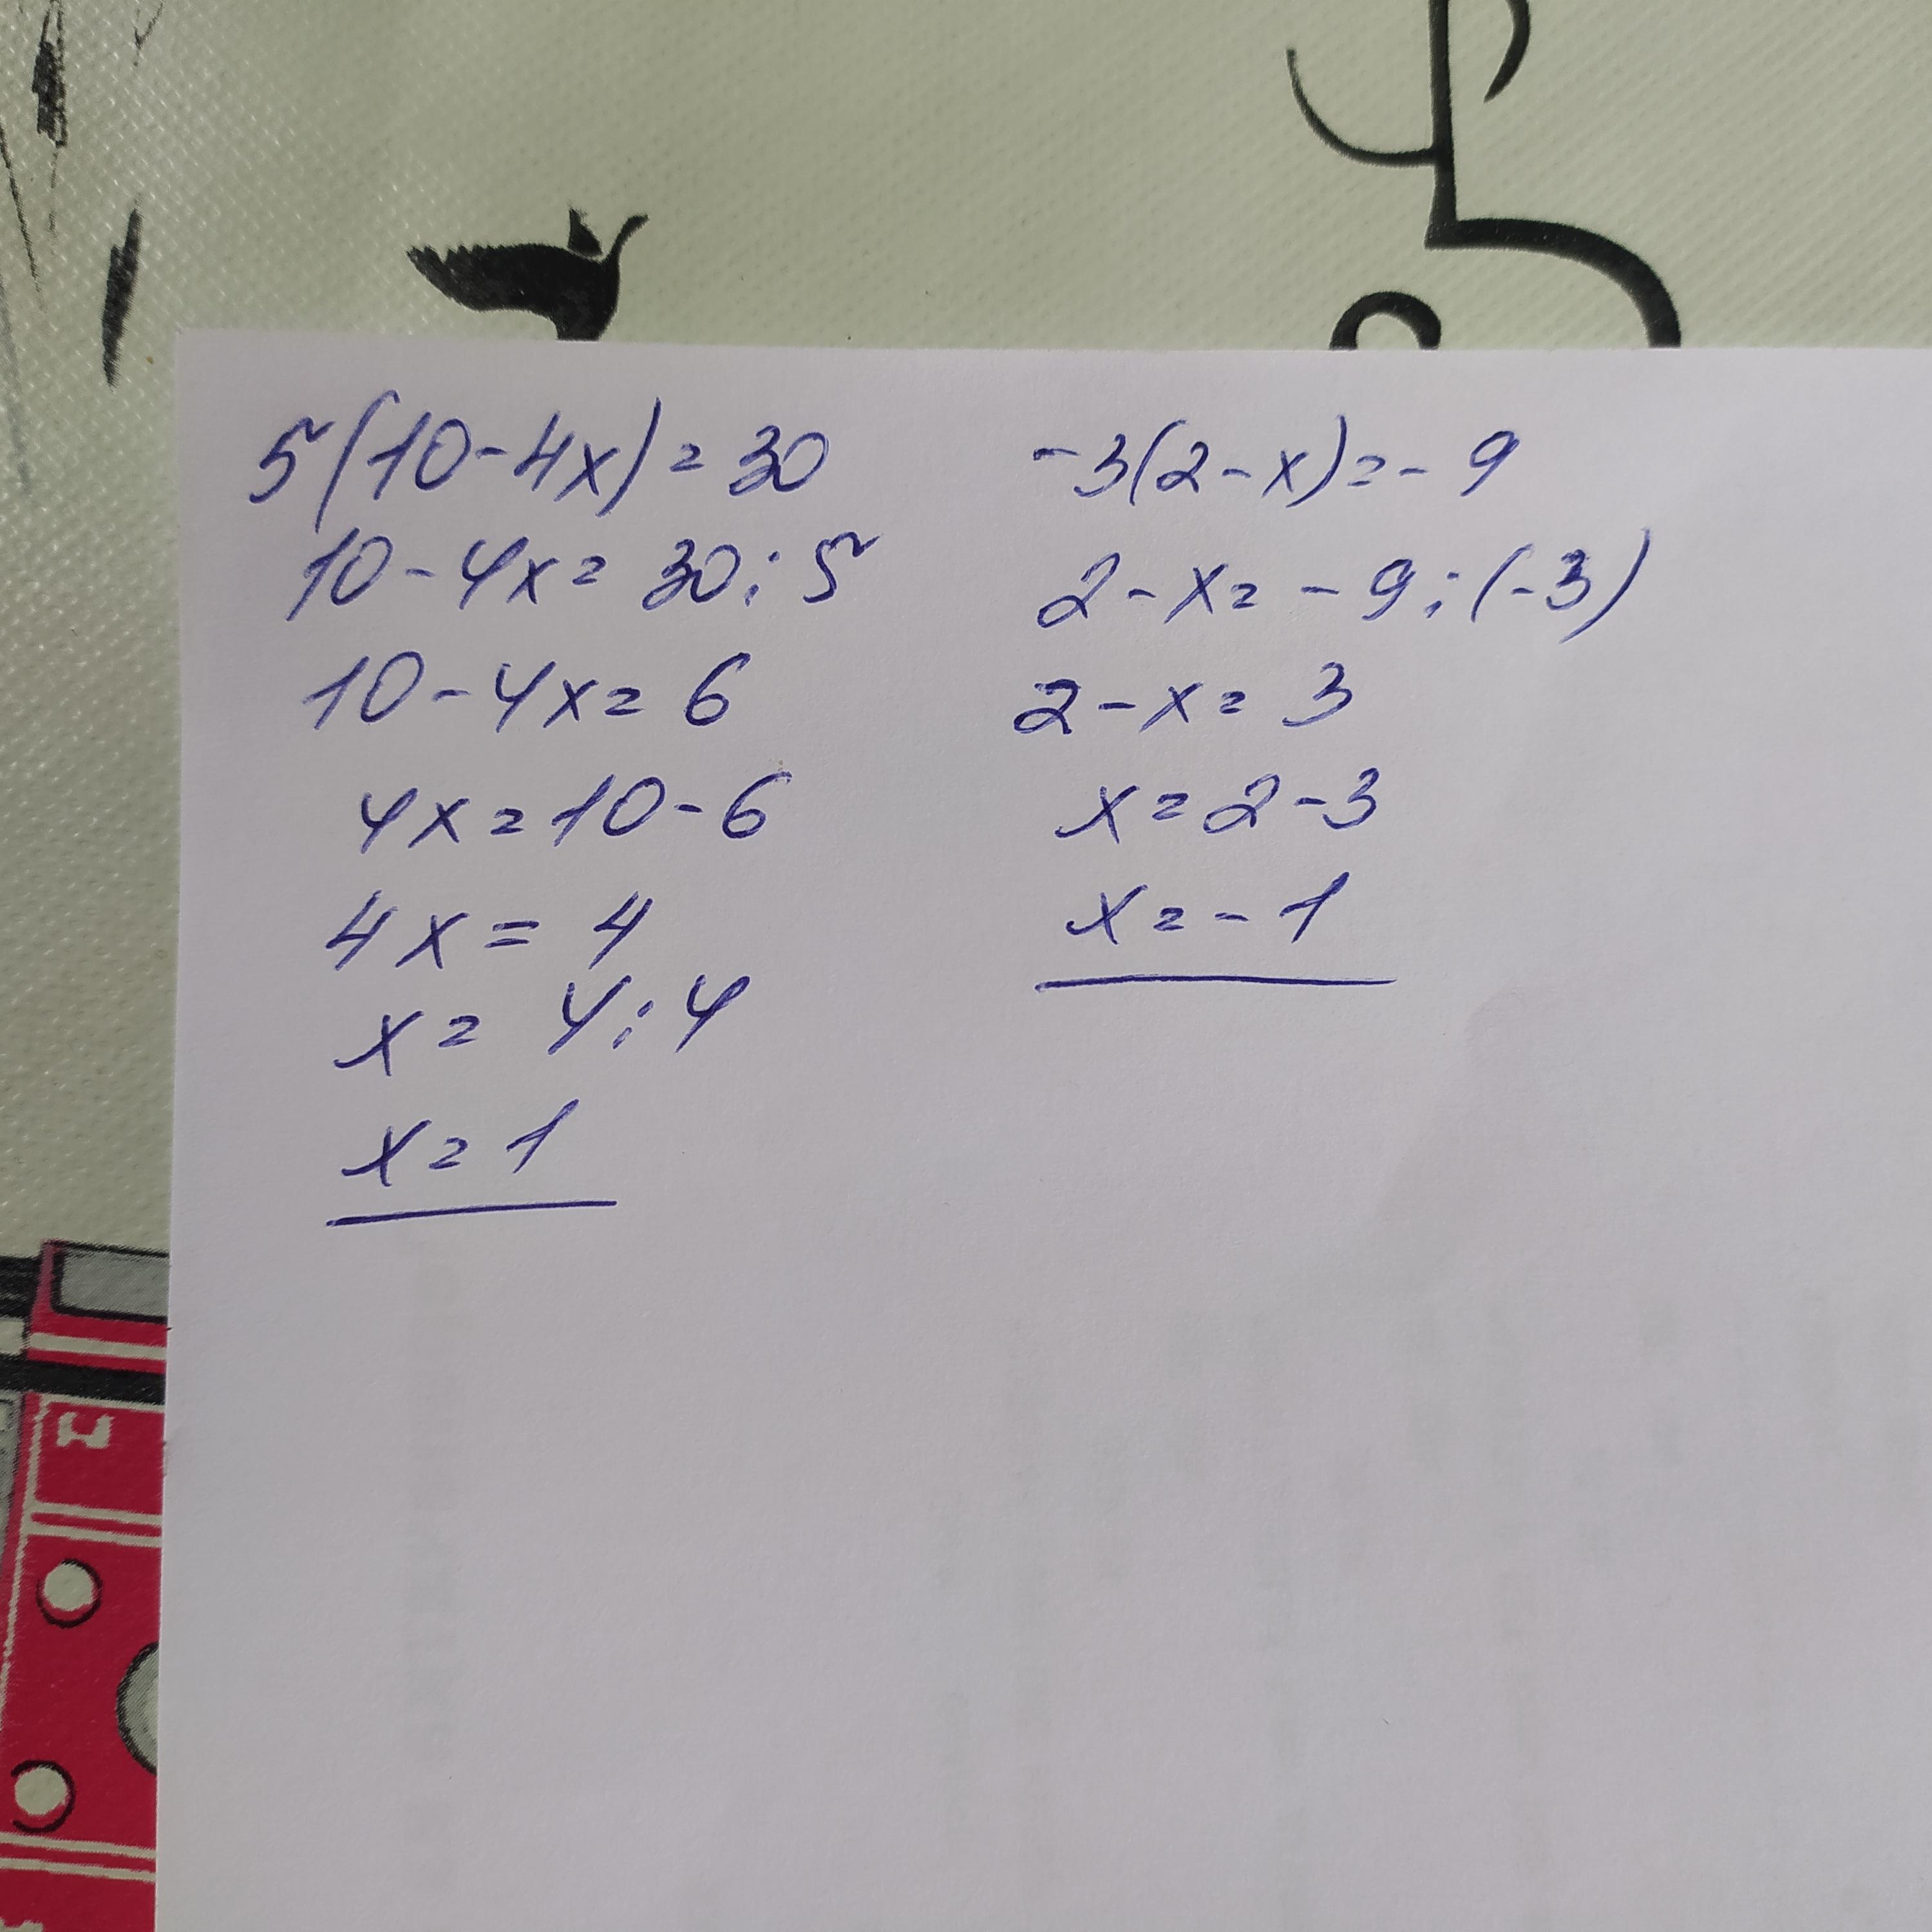 5(10-4x)=30
10-4x=30:5
10-4x=6
4x=10-6
4x=4
x=4:4
x=1
-3(2-x)=-9
2-x=-9:(-3)
2-x=3
x=2-3
x=-1